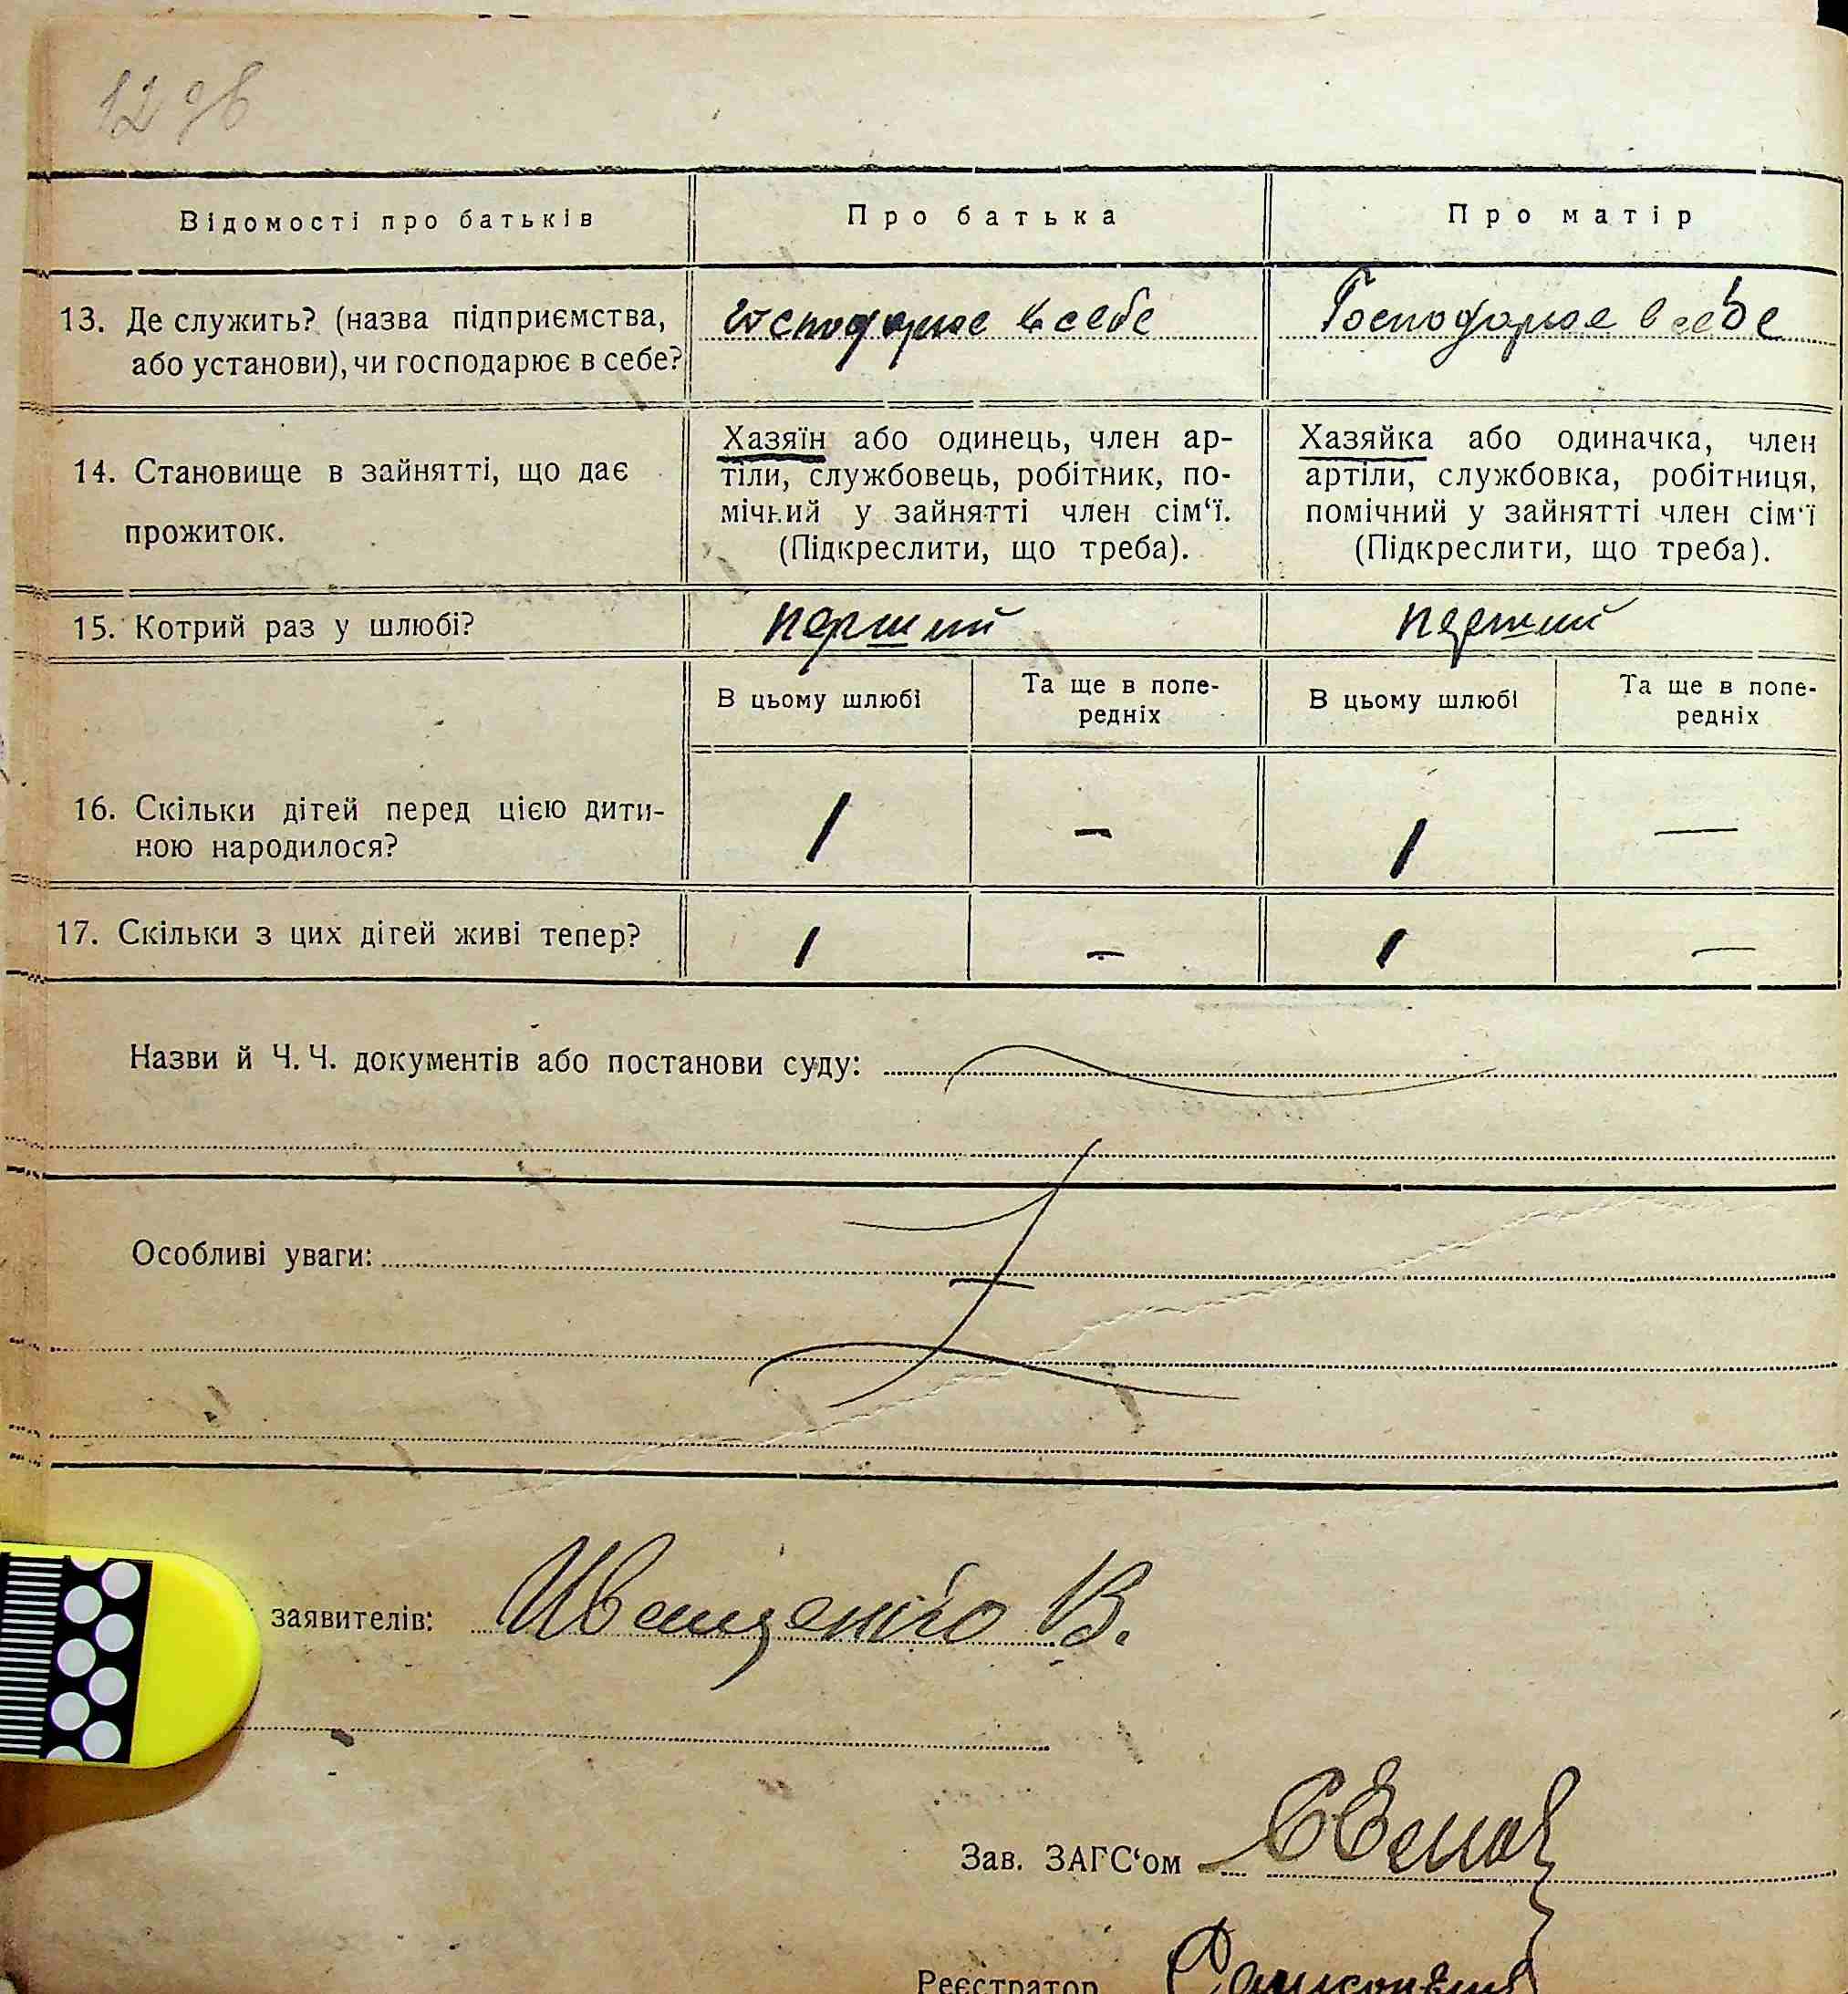 12 зв
Відомості про батьків
Про батька
Про матір
13. Де служить? (назва підприємства,
або установи), чи господарює в себе?
господарює в себе
Господарює в себе
14. Становище в зайнятті, що дає
прожиток.
Хазяїн або одинець, член ар-
тіли, службовець, робітник, по-
мічний у зайнятті член сім‘ї.
(Підкреслити, що треба).
Хазяйка або одиначка, член
артіли, службовка, робітниця,
помічний у зайнятті член сім‘ї
(Підкреслити, що треба).
15. Котрий раз у шлюбі?
перший
перший
В цьому шлюбі
Та ще в попе-
редніх
В цьому шлюбі
Та ще в попе-
редніх
16. Скільки дітей перед цією дити-
ною народилося?
1 – 1 —
17. Скільки з цих дітей живі тепер?
1 – 1 —
Назви й Ч. Ч. документів або постанови суду:
Особливі уваги:
заявителів: Иващенко В.
Зав. ЗАГС‘ом
Реєстратор